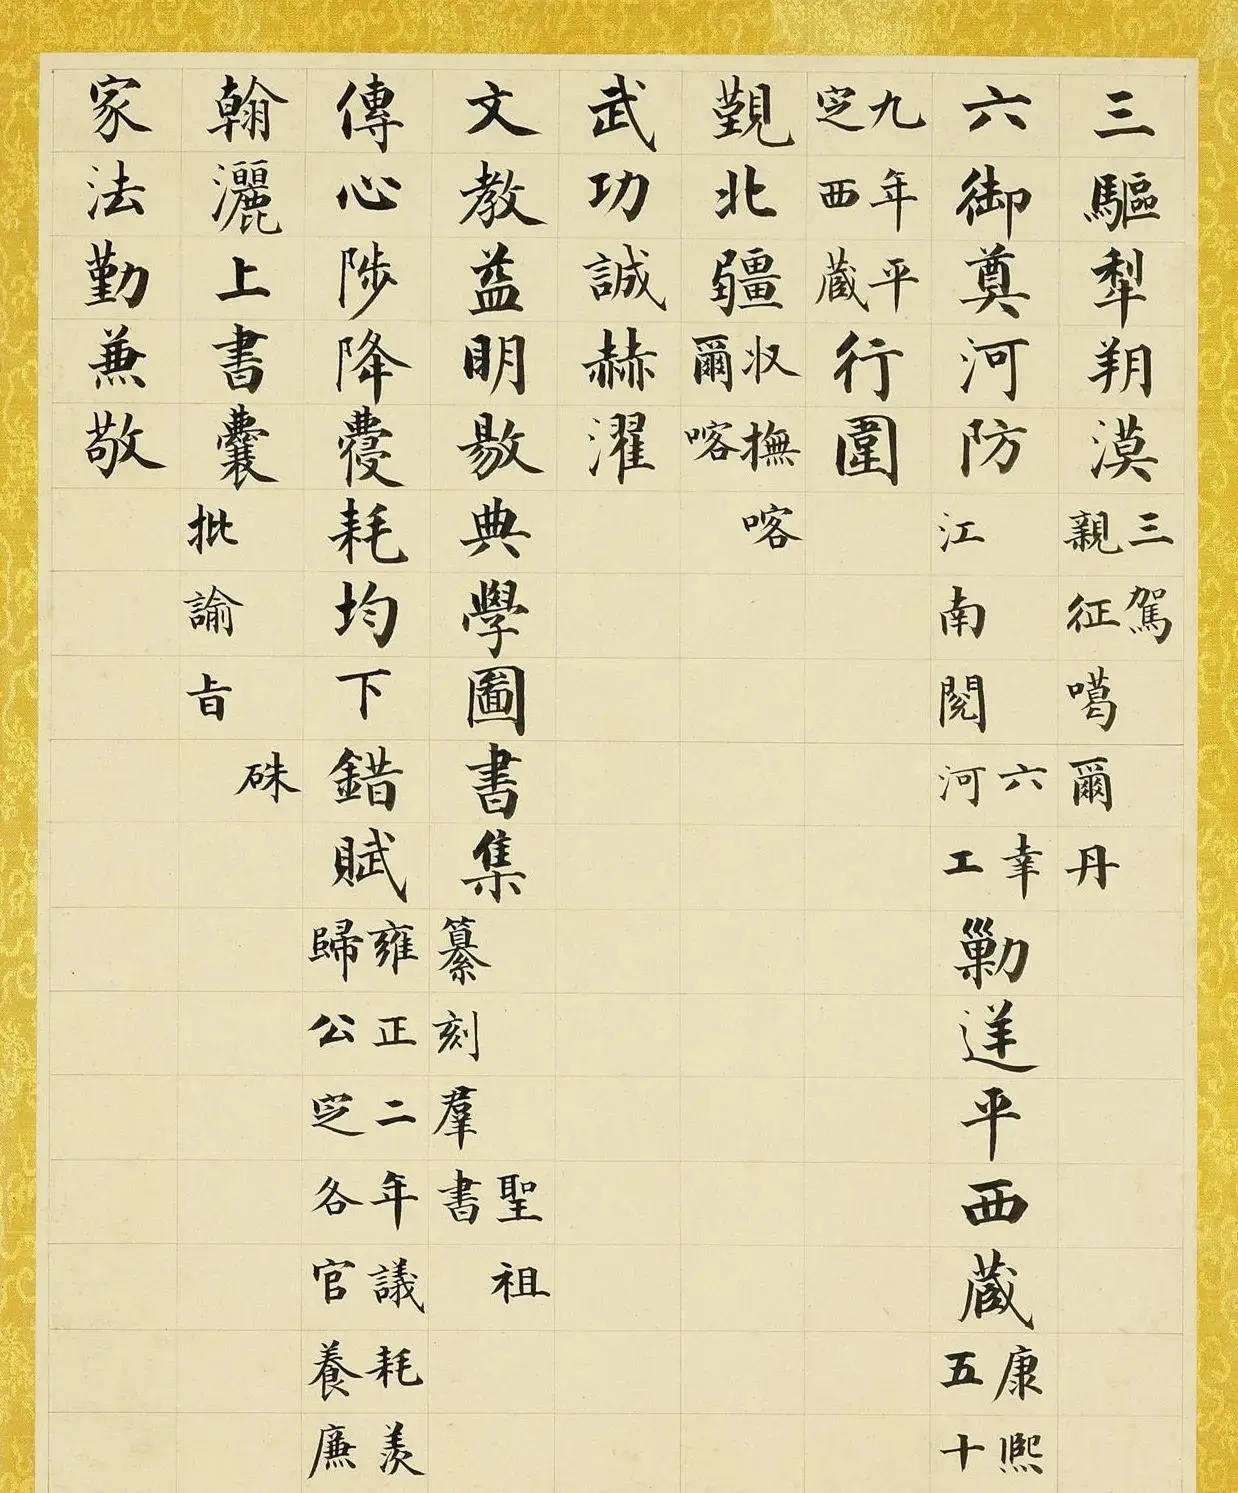 三驅犁朔漠三駕親征噶爾丹
六御奠河防六幸江南閱河工勦逆平西藏康熙五十
九年平定西藏行圍
覲北疆收撫喀爾喀
武功誠赫濯
文教益明敭典學圖書集聖祖纂刻羣書
傳心陟降蘉耗均下錯賦雍正二年議耗羨歸公定各官養廉
翰灑上書囊硃批諭旨
家法勤兼敬